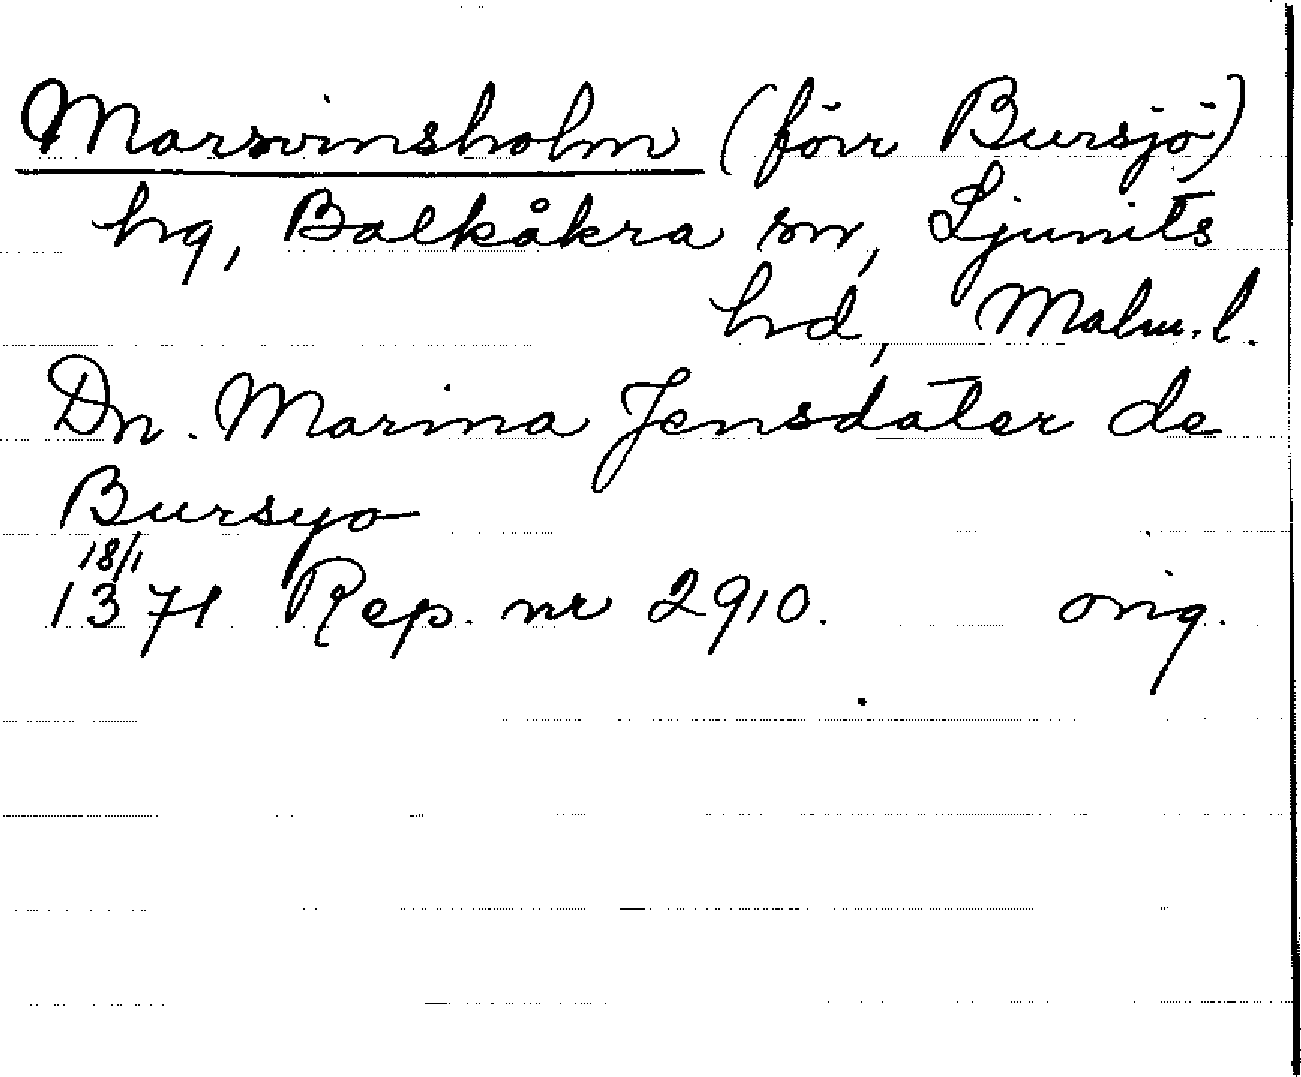 Marsvinsholm (förr Bursjö)
hg, Balkåkra sn, Ljunits
hd, Malm.l.
Dn. Marina Jensdater de
Bursyo
18/1
1371 Rep. nr 2910. orig.